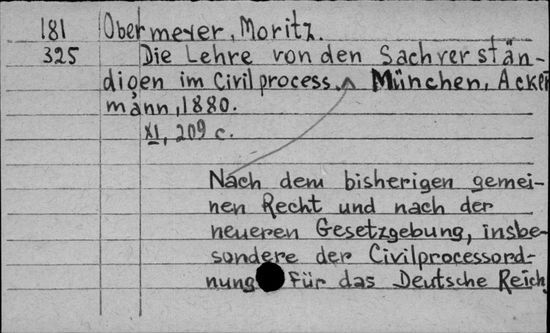 181 Obermeyer, Moritz.
325 Die Lehre von den Sachverstän-
digen im Civilprocess. München, Acker
mann, 1880.
XI, 209 c.
Nach dem bisherigen gemei-
nen Recht und nach der
neueren Gesetzgebung, insbe-
sondere der Civilprocessord-
nung für das Deutsche Reich